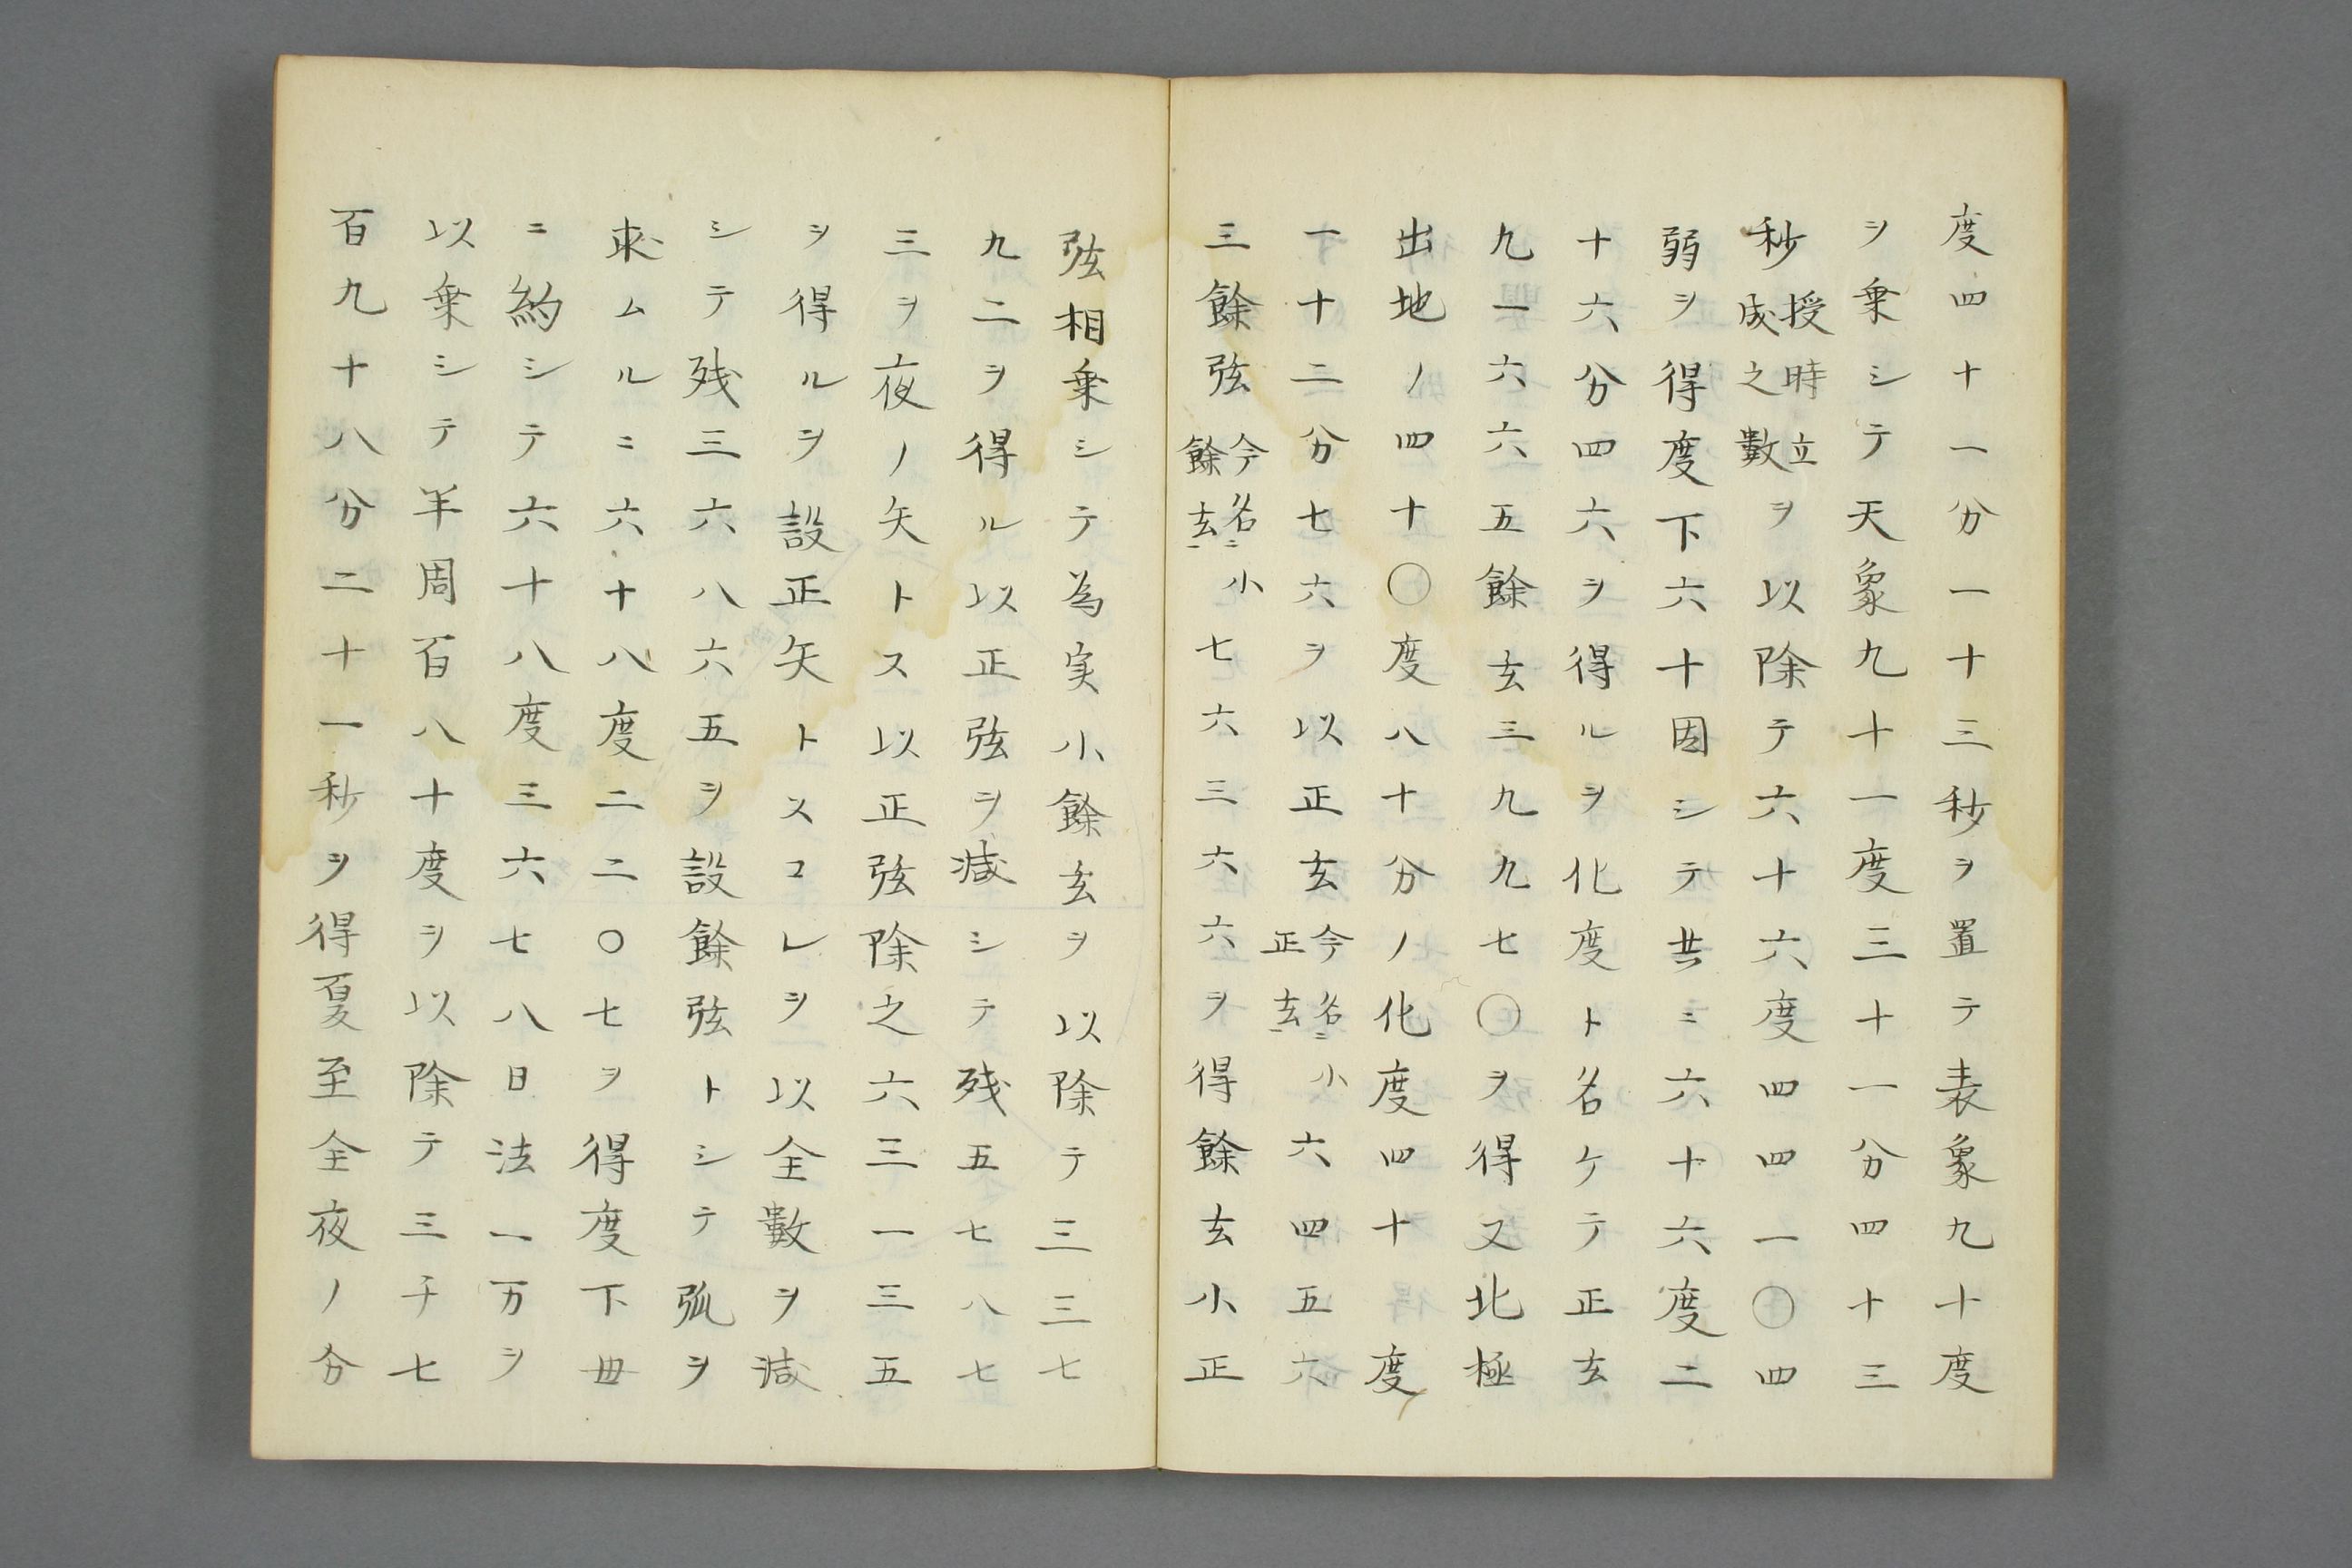 度四十一分一十三秒ヲ置テ表象九十度
ヲ乗シテ天象九十一度三十一分四十三
秒授時立成之數ヲ以除テ六十六度四四一〇四
弱ヲ得度下六十因シテ共ニ六十六度二
十六分四六ヲ得ルヲ化度ト名ケテ正玄
九一六六五餘玄三九九七〇ヲ得又北極
出地ノ四十〇度八十分ノ化度四十度
一十二分七六ヲ以正玄今名小正玄ニ六四五六
三餘弦今名小餘玄ニ七六三六六ヲ得餘玄小正
弦相乗シテ為実小餘玄ヲ以除テ三三七
九二ヲ得ル以正弦ヲ減シテ残五七八七
三ヲ夜ノ矢トス以正弦除之六三一三五
ヲ得ルヲ設正矢トスコレヲ以全數ヲ減
シテ残三六八六五ヲ設餘弦トシテ弧ヲ
求ムルニ六十八度二二〇七ヲ得度下毌
ニ約シテ六十八度三六七八日法一万ヲ
以乗シテ半周百八十度ヲ以除テ三千七
百九十八分二十一秒ヲ得夏至全夜ノ分